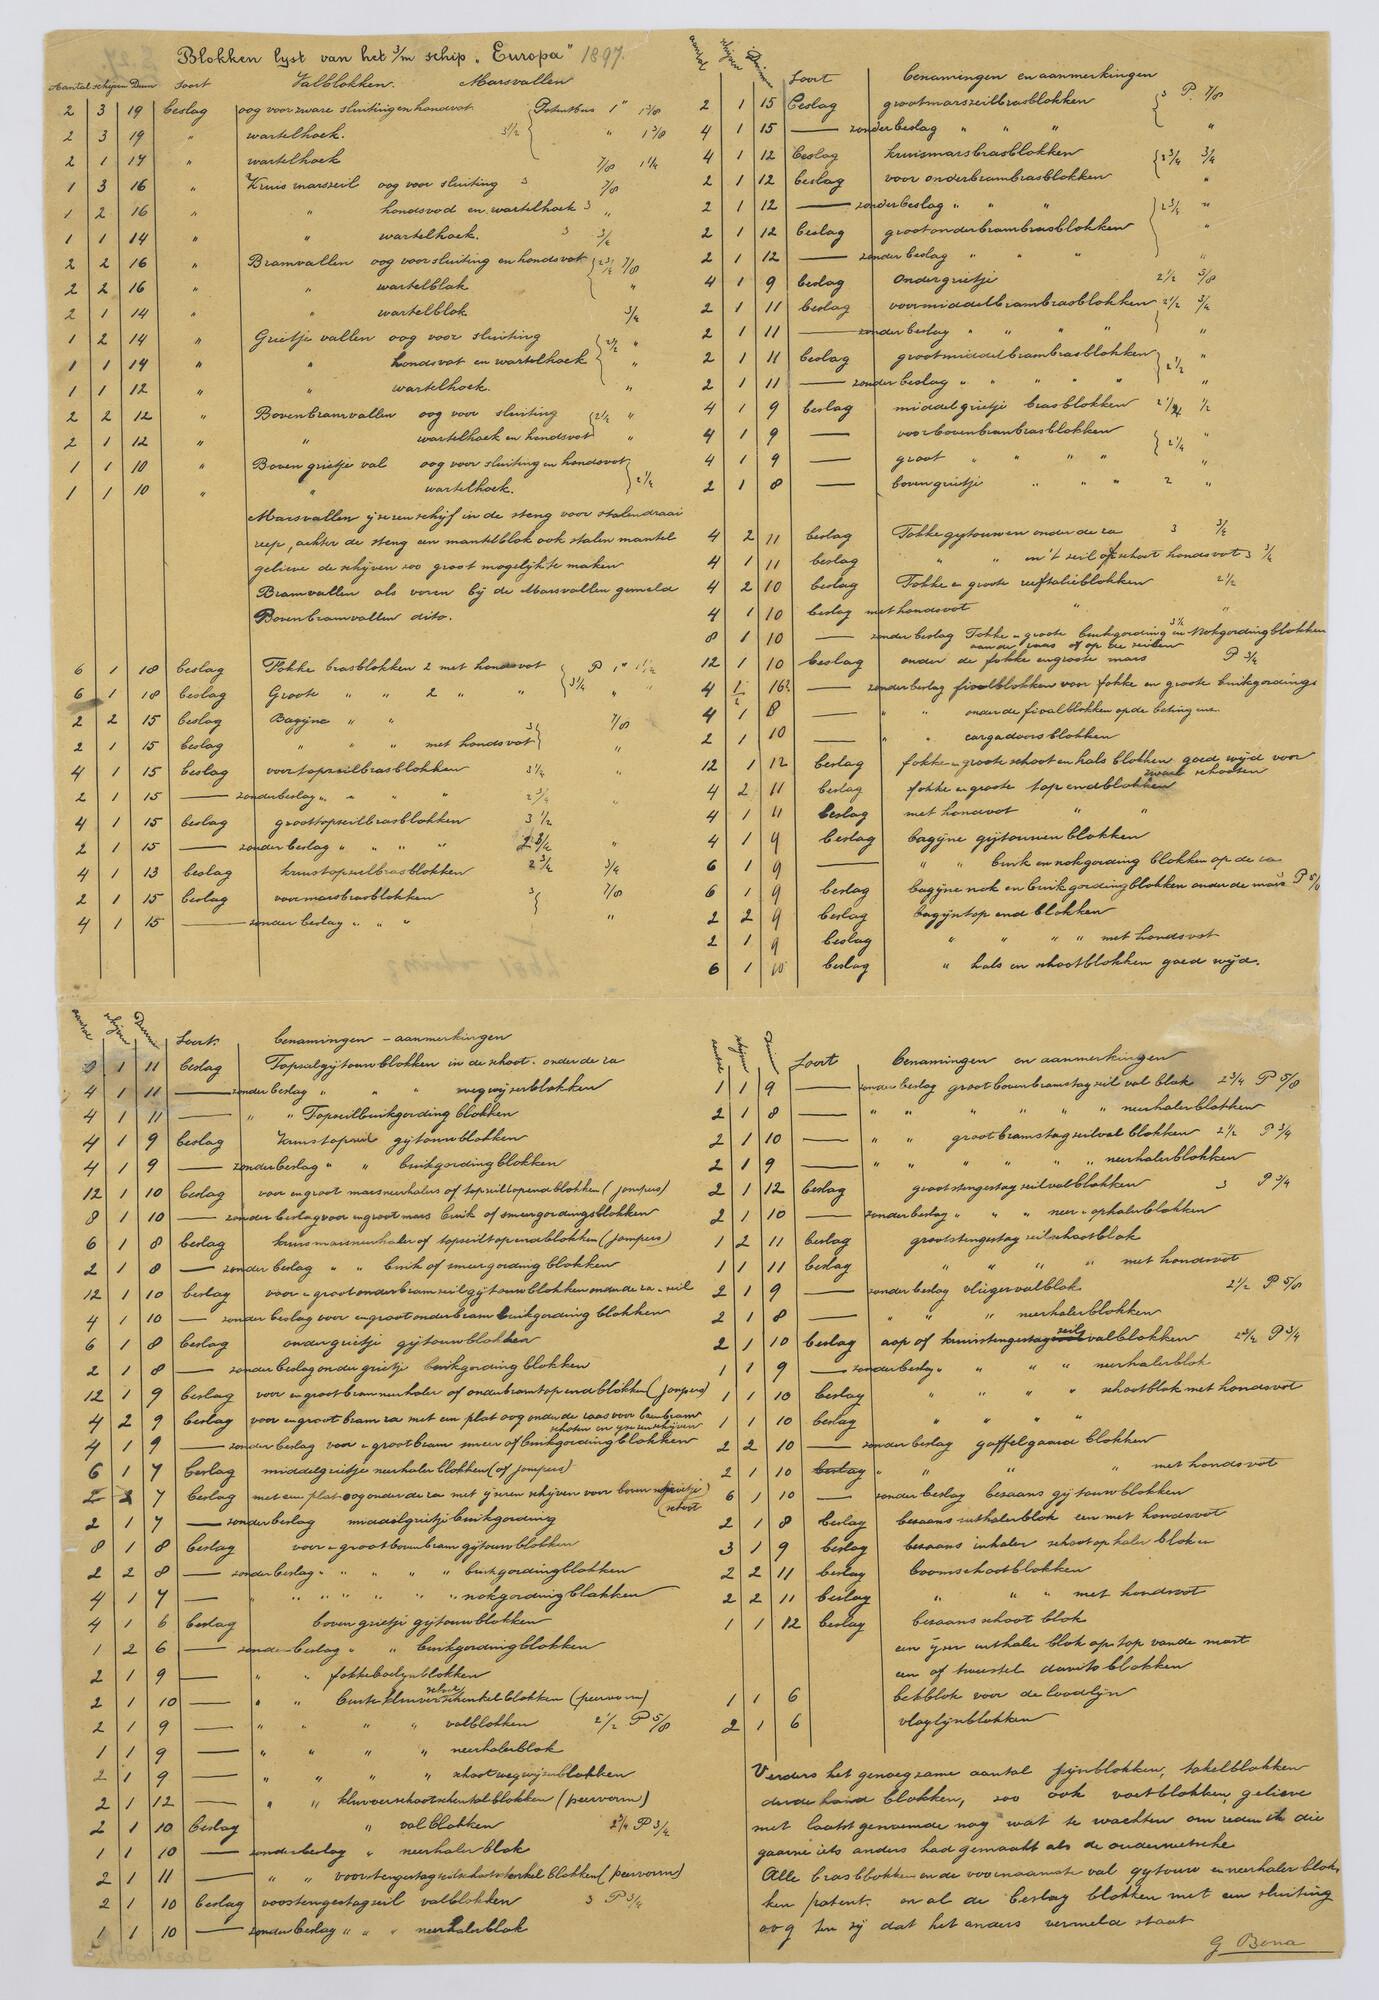 Blokken lyst van het 3/m schip „Europa" 1897.
Aantal schijven Duim Soort Valblokken. Marsvallen
2 3 19 beslag oog voor zware sluiting en hondsvot Patentbus 1" 1 3/8
2 3 19 " wartelhoek. 3 1/2 " 1 3/8
2 1 17 " wartelhoek 7/8 1 1/4
1 3 16 " Kruis marszeil oog voor sluiting 3 7/8
1 2 16 " " hondsvod en wartelhoek 3 "
1 1 14 " " wartelhoek. 3 3/4
2 2 16 " Bramvallen oog voor sluiting en hondsvot 2 3/4 7/8
2 2 16 " " wartelblok "
2 1 14 " " wartelblok 3/4
1 2 14 " Grietje vallen oog voor sluiting 2 1/2 "
1 1 14 " " hondsvot en wartelhoek "
1 1 12 " " wartelhoek. "
2 2 12 " Bovenbramvallen oog voor sluiting 2 1/2 "
2 1 12 " " wartelhoek en hondsvot "
1 1 10 " Boven grietje val oog voor sluiting en hondsvot
1 1 10 " " wartelhoek. 2 1/4
Marsvallen yseren schijf in de steng voor stalen draai
reep, achter de steng een mantelblok ook stalen mantel
gelieve de schijven zoo groot mogelijk te maken
Bramvallen als voren bij de Marsvallen gemeld
Bovenbramvallen dito.
6 1 18 beslag Fokke brasblokken 2 met hondsvot P 1" 1 1/2
6 1 18 beslag Groote " " 2 " " 3 3/4 " "
2 2 15 beslag Bagijne " " 7/8
2 1 15 beslag " " " met hondsvot 3 "
4 1 15 beslag voortopzeilbrasblokken 3 1/2 "
2 1 15 — zonder beslag " " " 2 3/4 "
4 1 15 beslag groottopzeilbrasblokken 3 1/2
2 1 15 — zonder beslag " " " " 2 3/4 "
4 1 13 beslag kruistopzeilbrasblokken 2 3/4 3/4
2 1 15 beslag voormarsbrasblokken 3 7/8
4 1 15 — zonder beslag " " " "
aantal schijven Duim Soort benamingen en aanmerkingen
2 1 15 beslag grootmarszeilbrasblokken 3 P. 7/8
4 1 15 — zonder beslag " " " "
4 1 12 beslag kruismarsbrasblokken 2 3/4 3/4
2 1 12 beslag voor onderbrambrasblokken "
2 1 12 — zonder beslag " " " 2 3/4 "
2 1 12 beslag grootonderbrambrasblokken "
2 1 12 — zonder beslag " " " "
4 1 9 beslag ondergrietje 2 1/2 5/8
2 1 11 beslag voormiddelbrambrasblokken 2 1/2 3/4
2 1 11 — zonder beslag " " " " "
2 1 11 beslag grootmiddelbrambrasblokken 2 1/2 "
2 1 11 — zonder beslag " " " " " "
4 1 9 beslag middelgrietje brasblokken 2 1/4 1/2
4 1 9 — voorbovenbrambrasblokken "
4 1 9 — groot " " " 2 1/4 "
2 1 8 — bovengrietje " " " 2 "
4 2 11 beslag Fokke gytouwen onder de ra 3 3/4
4 1 11 beslag " " in 't zeil of schoot hondsvot 3 3/4
4 2 10 beslag Fokke en groote reeftalieblokken 2 1/2
4 1 10 beslag met hondsvot " "
8 1 10 — zonder beslag Fokke en groote buikgording en Nokgordingblokken
aan de raas of op de zeilen
12 1 10 beslag onder de fokke en groote mars P 3/4
4 1/2 16? — zonder beslag fioolblokken voor fokke en groote buikgordings
4 1 8 — " " onder de fioolblokken op de beting
2 1 10 — " " cargadoorsblokken
12 1 12 beslag fokke en groote schoot en hals blokken goed wijd voor
zwaar schooten
4 2 11 beslag fokke en groote top end blokken
4 1 11 beslag met hondsvot " "
4 1 9 beslag bagijne gijtouwen blokken
6 1 9 — " " buik en nokgording blokken op de ra
6 1 9 beslag bagijne nok en buikgordingblokken onder de mars P 5/8
2 2 9 beslag bagijntop end blokken
2 1 9 beslag " " " met hondsvot
6 1 10 beslag " hals en schootblokken goed wijd.
aantal schijven Duim Soort. benamingen – aanmerkingen
8 1 11 beslag Topzeilgijtouwblokken in de schoot. onder de ra
4 1 11 — zonder beslag " " " wegwijzerblokken
4 1 11 — " " Topzeilbuikgording blokken
4 1 9 beslag kruistopzeil gijtouwblokken
4 1 9 — zonder beslag " " buikgordingblokken
12 1 10 beslag voor en groot marsneerhalers of topzeiltopendblokken (jompers)
8 1 10 — zonder beslag voor en groot mars buik of smeergordingsblokken
6 1 8 beslag kruismarsneerhaler of topzeiltopendblokken (jompers)
2 1 8 — zonder beslag " " buik of smeergording blokken
12 1 10 beslag voor en groot onderbramzeilgijtouwblokken onder de ra. zeil
4 1 10 — zonder beslag voor en groot onderbram buikgording blokken
6 1 8 beslag ondergrietje gijtouwblokken
2 1 8 — zonder beslag ondergrietje buikgording blokken
12 1 9 beslag voor en groot bramneerhaler of onderbramtop endblokken (jompers)
4 2 9 beslag voor en groot bram ra met een plat oog onder de raas voor bovenbram
schoten en yzeren schijven
4 1 9 — zonder beslag voor en groot bram smeer of buikgordingblokken
6 1 7 beslag middelgrietje neerhaler blokken (of jompers)
2 2 7 beslag met een plat oog onder de ra met yzeren schijven voor boven grietje
(schoot
2 1 7 — zonder beslag middelgrietje buikgording
8 1 8 beslag voor en groot bovenbram gijtouwblokken
2 2 8 — zonder beslag " " " " " buikgordingblokken
4 1 7 — " " " " " " " nokgordingblokken
4 1 6 beslag boven grietje gijtouwblokken
1 2 6 — zonder beslag " " buikgordingblokken
2 1 9 — " " fokkeboelijnblokken
2 1 10 — " " buitenkluiver schenkelblokken (peervorm)
2 1 9 — " " " " valblokken 2 1/2 P 5/8
1 1 9 — " " " " neerhalerblok
2 1 9 — " " " " schootwegwijzerblokken
2 1 12 — " " kluiverschootschenkelblokken (peervorm)
2 1 10 beslag " valblokken 2 3/4 P 3/4
1 1 10 — zonder beslag " neerhalerblok
2 1 11 — " " voorstengestagzeilschootschenkel blokken (peervorm)
2 1 10 beslag voorstengestagzeil valblokken 3 P 3/4
1 1 10 — zonder beslag " " " neerhalerblok
aantal schijven Duim Soort benamingen en aanmerkingen
1 1 9 — zonder beslag groot bovenbramstagzeil val blok 2 3/4 P 5/8
2 1 8 — " " " " " " neerhalerblokken
2 1 10 — " " grootbramstagzeilval blokken 2 1/2 P 3/4
2 1 9 — " " " " " " neerhalerblokken
2 1 12 beslag grootstengestagzeilvalblokken 3 P 3/4
2 1 10 — zonder beslag " " " neer en ophalerblokken
1 2 11 beslag grootstengestagzeilschootblok
1 1 11 beslag " " " " met hondsvot
2 1 9 — zonder beslag vliegervalblok 2 1/2 P 5/8
2 1 8 — " " " neerhalerblokken
2 1 10 beslag aap of kruisstengestagzeilvalblokken 2 3/4 P 3/4
1 1 9 — zonder beslag " " " " neerhalerblok
1 1 10 beslag " " " " schootblok met hondsvot
1 1 10 beslag " " " "
2 2 10 — zonder beslag gaffelgaard blokken
2 1 10 beslag " " " " met hondsvot
6 1 10 — zonder beslag bezaans gijtouwblokken
2 1 8 beslag bezaans uithalerblok een met hondsvot
3 1 9 beslag bezaans inhaler schootophaler blokken
2 2 11 beslag boomschootblokken
2 2 11 beslag " " met hondsvot
1 1 12 beslag bezaanschoot blok
een yzer uithaler blok op top van de mast
een of tweestel davits blokken
1 1 6 bekblok voor de loodlijn
2 1 6 vlaglijnblokken
Verders het genoegzame aantal fijnblokken, takelblokken
derde hand blokken, zoo ook voetblokken, gelieve
met laatst genoemde nog wat te wachten om reden ik die
gaarne iets anders had gemaakt als de ouderwetsche
Alle brasblokken en de voornaamste val gytouw en neerhaler blok,
ken patent. en al de beslag blokken met een sluiting
oog ten zij dat het anders vermeld staat
G Bona